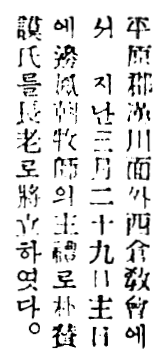 平原郡漢川面外西倉敎會에
서 지난三月二十九日主日
에邊鳳朝牧師의主禮로朴賛
謨氏를長老로將立하엿다。